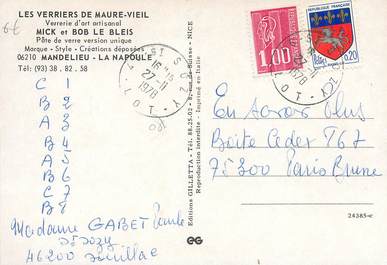 LES VERRIERS DE MAURE-VIEIL
Verrerie d'art artisanal
MICK et BOB LE BLEIS
Pâte de verre version unique
Marque - Style - Créations déposées
06210 MANDELIEU - LA NAPOULE
Tél: (93) 38.82.58
C 1
B 2
A 3
B 4
A 5
B 6
C 7
B 8
Madame GABET Paule
46200 Souillac
16H15
27-11
1978
LOT
Editions GILLETTA - Tél. 88.25-02 - 8, - NICE
Reproduction interdite - Imprimé en Italie
POSTES
1,00
REPUBLIQUE FRANÇAISE
0,20
27-11
1978
En avoir plus
Boîte Ceder T 67
75300 Paris Brune
24385-c